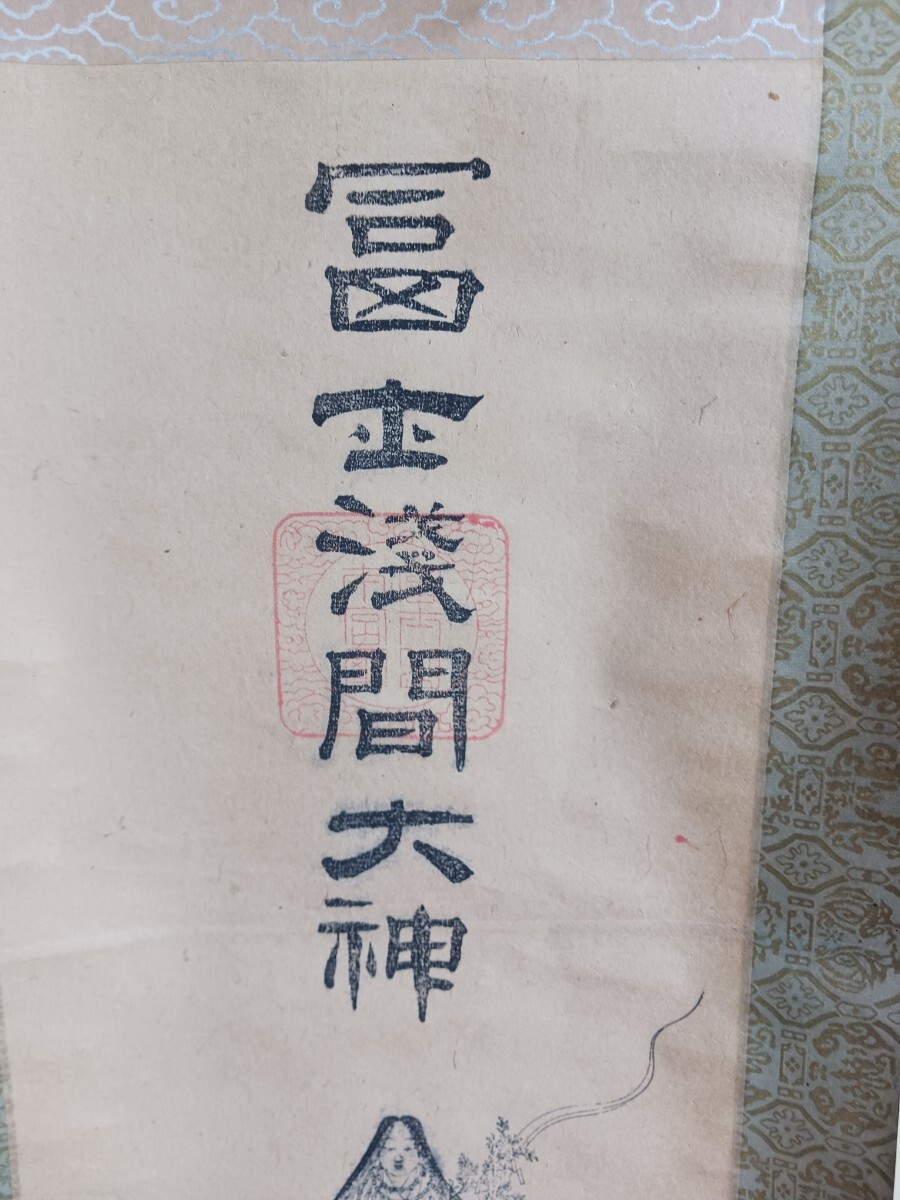 冨士淺間大神